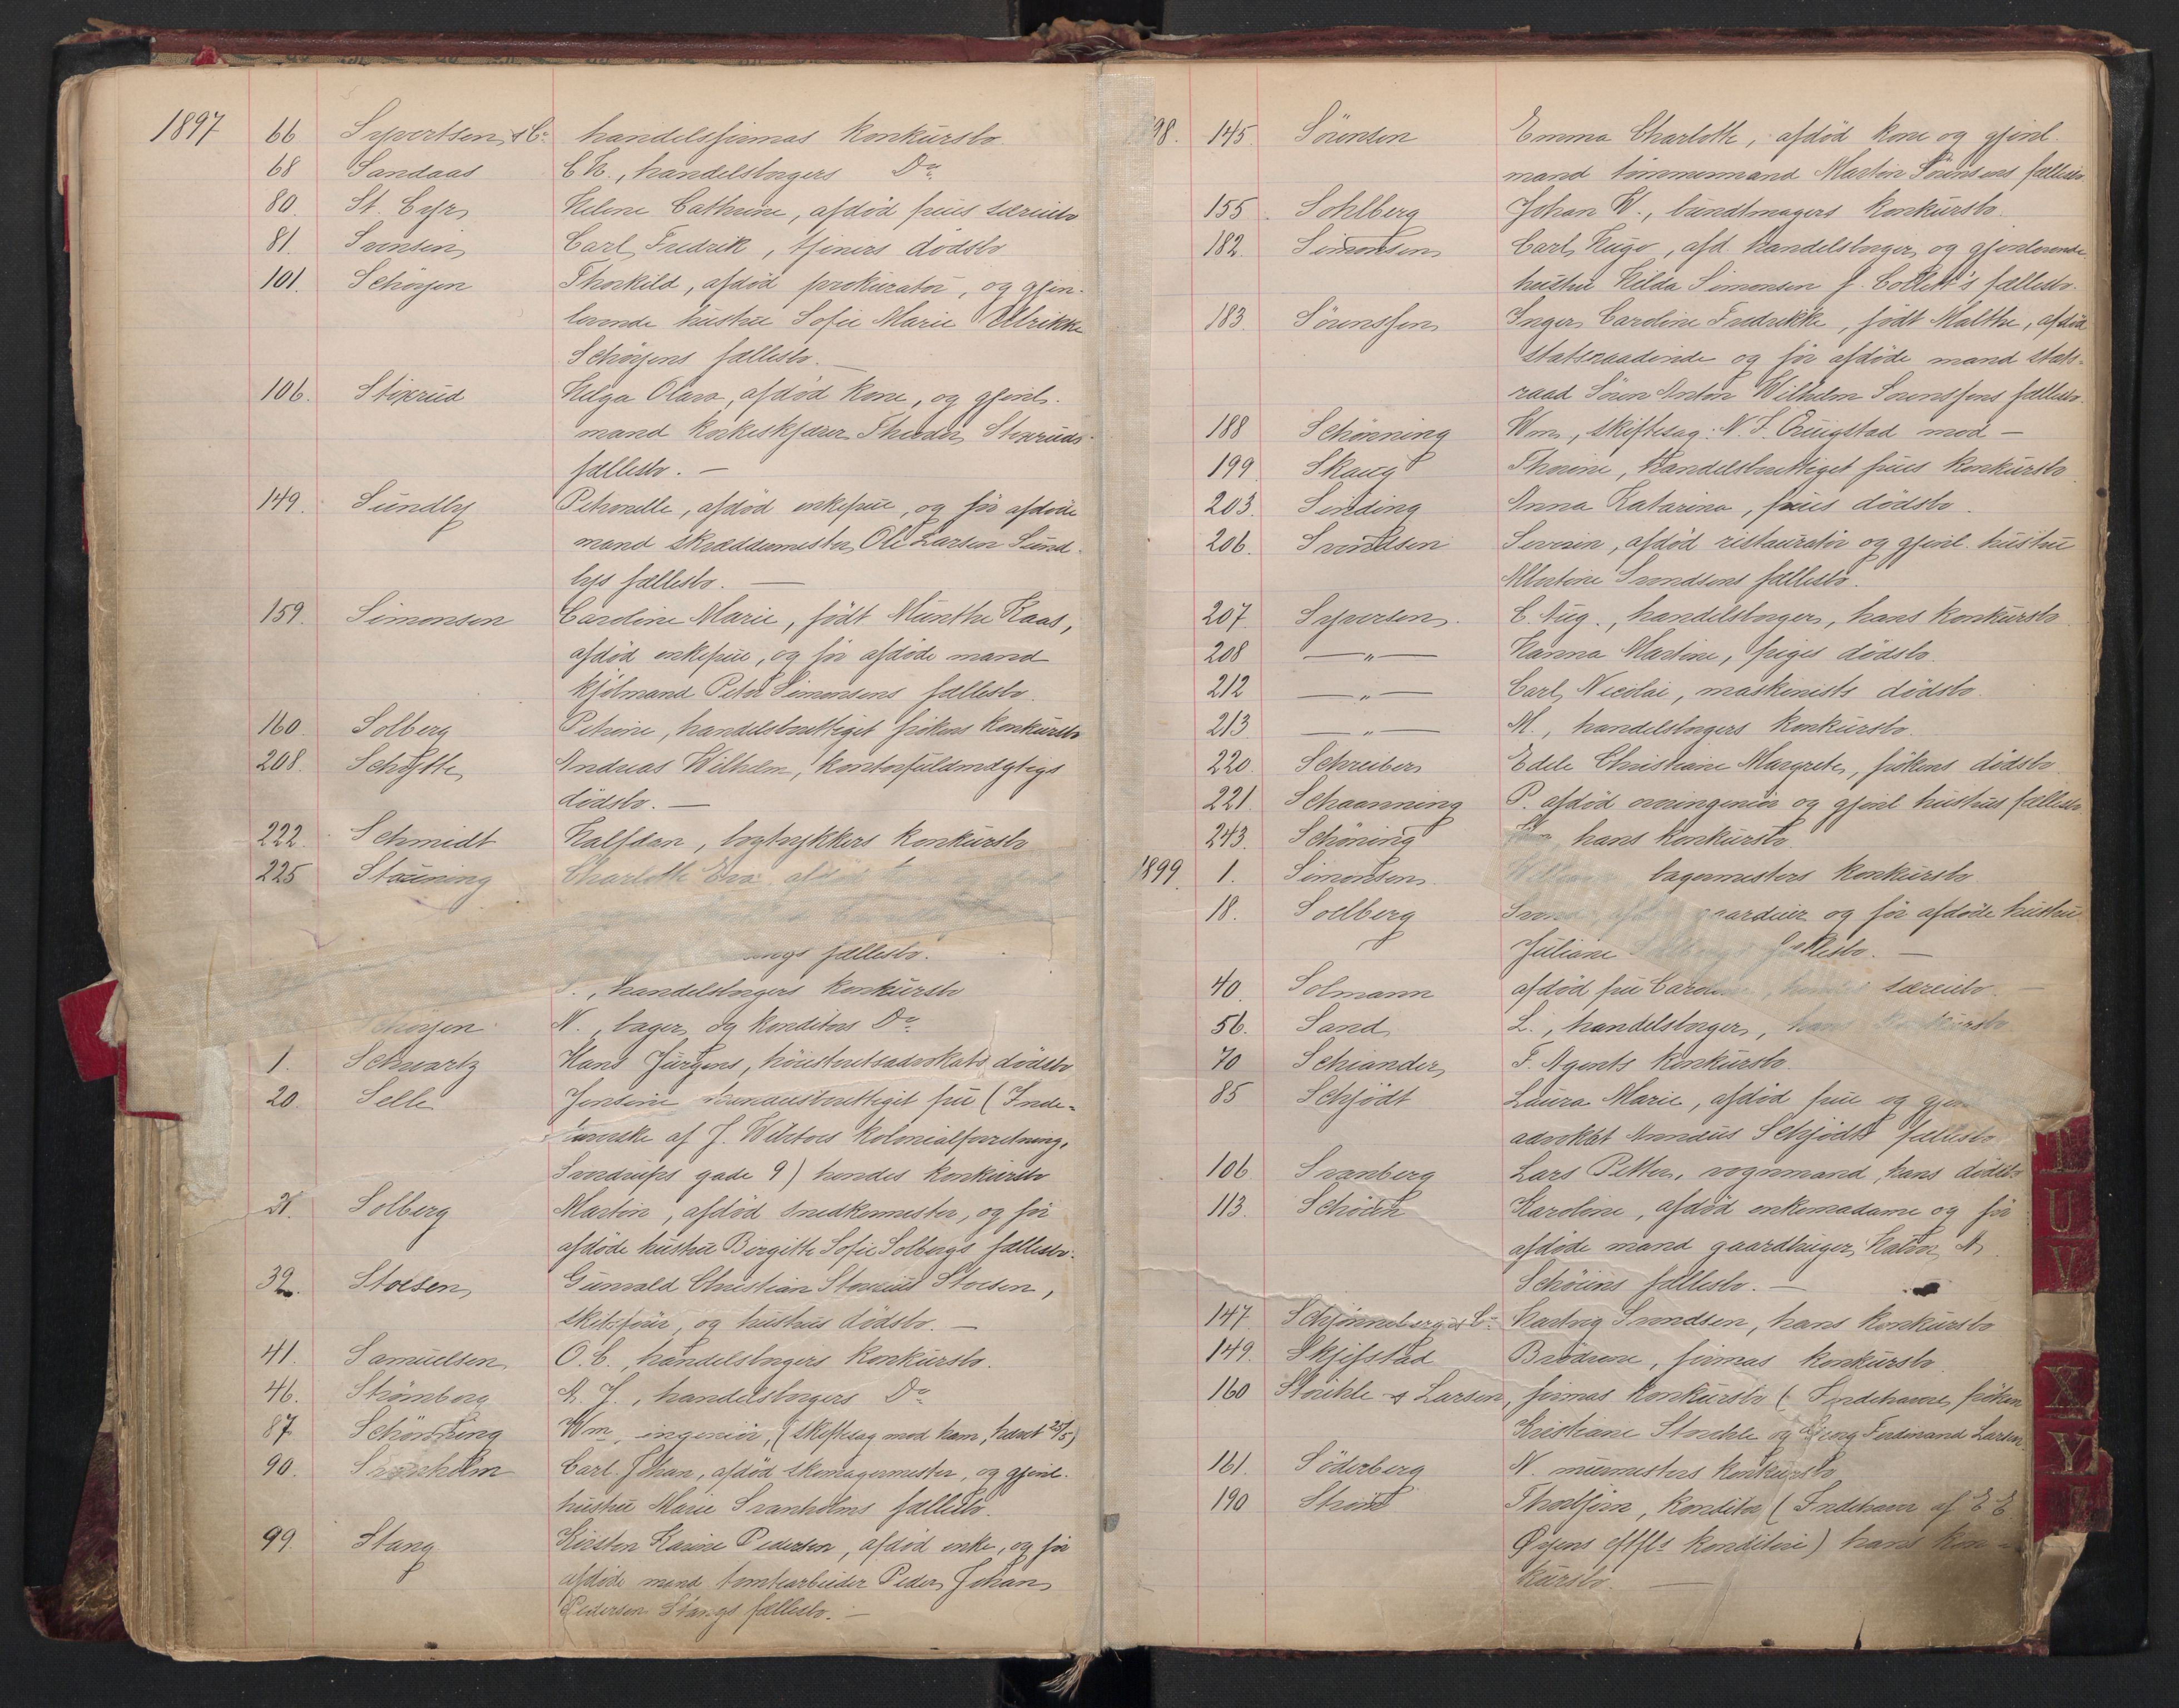 1897 66 Syvertsen & Co handelsfirmas konkursbo
68 Sandaas C. H., handelsborgers Do
80. St. Cyr Helene Cathrine, afdød frues særeiebo
81. Svensen Carl Fredrik, tjeners dødsbo
101. Schøyen Thorkild, afdød prokurator, og gjen-
levende hustru Sofie Marie Ulrikke
Schøyens fællesbo.
106. Stixrud Helga Olava, afdød kone, og gjenl.
mand kirkeskjærer Theodor Stixruds
fællesbo. —
149. Sundby Petronelle, afdød enkefrue, og før afdøde
mand skræddermester Ole Larsen Sund-
bys fællesbo. —
159. Simonsen Caroline Marie, født Munthe Kaas,
afdød enkefrue, og før afdøde mand
kjølmand Peter Simonsens fællesbo.
160 Solberg Petrine, handelsberettiget frøkens konkursbo
208. Schøtte Andreas Wilhelm, kontorfuldmægtigs
dødsbo. —
222. Schmidt Halfdan, bogtrykkers konkursbo
225 Stauning Charlotte
fællesbo.
, handelsborgers konkursbo
N., bager og konditors Do
1. Schwartz Hans Jürgens, høiesteretsadvokats dødsbo
20. Selle Jensine handelsberettiget frue (Inde-
haverske af J. Wiktors kolonialforretning,
Sverdrups gade 9) hendes konkursbo
21. Solberg Martin, afdød snedkermester, og før
afdøde hustru Birgitte Sofie Solbergs fællesbo.
32. Stoesen Gunvald Christian Stoesen,
skibsfører, og hustrus dødsbo. —
41. Samuelsen O. C., handelsborgers konkursbo.
46. Strømborg A. J., handelsborgers Do
87. Schønning Wm, ingeniør, (skiftesag mod ham, hævet 25/5)
90. Svanholm Carl Johan, afdød skomagermester, og gjenl.
hustru Marie Svanholms fællesbo.
99. Stang Kirsten Karine Pedersen, afdød enke, og før
afdøde mand tomtearbeider Peder Johan
Pedersen Stangs fællesbo. —
98. 145 Sørensen Emma Charlotte, afdød kone og gjenl.
mand tømmermand Martin Sørensens fællesbo
155. Sohlberg Johan W., bundtmagers konkursbo.
182. Simonsen Carl Hugo, afd. handelsborger, og gjenlevende
hustru Hilda Simonsen f. Collett's fællesbo.
183. Sørenssen Inger Caroline Fredrikke, født Malthe, afdød
statsraadinde og før afdøde mand stats-
raad Søren Anton Wilhelm Sørenssens fællesbo.
188 Schønning Wm, skiftesag: N. S. Ruigstad mod —
199. Skaug Thorine, handelsberettiget frues konkursbo
203. Sinding Anna Katarina, frues dødsbo.
206. Svendsen Severin, afdød restauratør og gjenl. hustru
Albertine Svendsens fællesbo.
207 Syversen. C. Aug., handelsborger, hans konkursbo
208 —„— Hanna Martine, piges dødsbo.
212 —„— Carl Nicolai, maskinists dødsbo.
213 —„— M., handelsborgers konkursbo.
220. Schreiber Edele Christiane Margrete, frøkens dødsbo
221. Schaanning P. afdød overingeniør og gjenl hustrus fællesbo
243. Schöning hans konkursbo
1899 1. Simonsen bagermesters konkursbo
18. Solberg gaardeier og før afdøde hustru
Juliane fællesbo. —
40. Solmann afdød frue Caroline, særeiebo. —
56. Sand L., handelsborger, hans konkursbo
70 Schiander F. Agents konkursbo.
85 Schjødt Laura Marie, afdød frue og gjen
advokat Annæus Schjødts fællesbo
106 Svanberg Lars Petter, vognmand, hans dødsbo
113. Schøien Karoline, afdød enkemadame og før
afdøde mand gaardbruger
Schøiens fællesbo. —
147. Schjønneberg & Co Hartvig Svendsen, hans konkursbo
149. Skjefstad Brødrene, firmas konkursbo.
160 Støckle & Larsen, firmas konkursbo (Indehavere, frøken
Kristiane Støckle og Georg Ferdinand Larsen
161. Söderberg N. murmesters konkursbo
190 Strøm Thorbjørn, konditor (Indehaver af E E
Øyens eftfls konditori) hans kon-
kursbo. —
U
V
X
Y